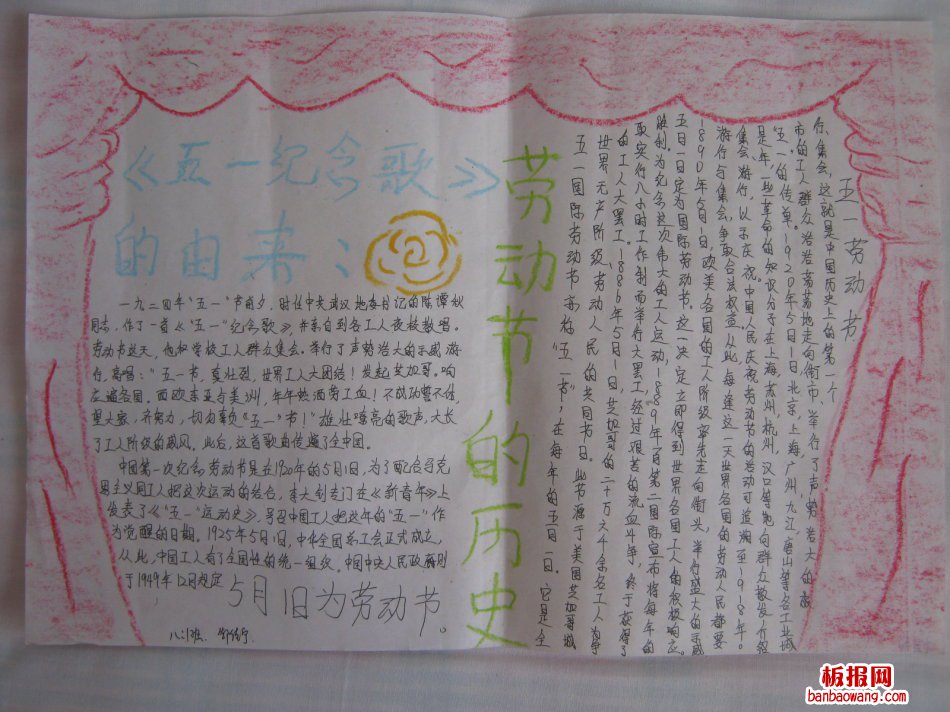 《五一纪念歌》
的由来：
一九二四年“五一”节前夕，时任中共武汉地委书记的陈潭秋
同志，作了一首《“五一”纪念歌》，并亲自到各工人夜校教唱。
劳动节这天，他和学校工人群众集会。举行了声势浩大的示威游
行，高唱：“五一节，真壮烈，世界工人大团结！发起芝加哥。响
应遍各国。西欧东亚与美洲，年年热洒劳工血！不成功誓不休，
望大家，齐努力，切勿辜负《五一”节！”雄壮嘹亮的歌声，大长
了工人阶级的威风，此后，这首歌曲传遍了全中国。
中国第一次纪念劳动节是在1920年的5月1日，为了配合马克
思主义同工人把这次运动的结合，李大钊专门在《新青年》上
发表了《“五一”运动史》，号召中国工人把这年的“五一”作
为觉醒的日期，1925年5月1日，中华全国总工会正式成立，
从此，中国工人有了全国性的统一组织。中国中央人民政府则
于1949年12月规定
5月1日为劳动节。
劳动节的历史
五一国际劳动节亦称“五一节”，在每年的五月一日。它是全
世界无产阶级劳动人民的共同节日。此节源于美国芝加哥城
的工人大罢工。1886年5月1日，芝加哥的二十万六千余名工人为争
取实行八小时工作制而举行大罢工，经过艰苦的流血斗争，终于获得了
胜利。为纪念这次伟大的工人运动，1889年7月第二国际宣布将每年的
五月一日定为国际劳动节。这一决定立即得到世界各国工人的积极响应。
1890年5月1日，欧美各国的工人阶级率先走向街头，举行盛大的示威
游行与集会，争取合法权益。从此，每逢这一天世界各国的劳动人民都要
集会、游行，以示庆祝。中国人民庆祝劳动节的活动可追溯至1918年。
是年，一些革命的知识分子在上海、苏州、杭州、汉口等地向群众散发介绍
“五一”的传单。1920年5月1日，北京、上海、广州、九江、唐山等各工业城
市的工人群众浩浩荡荡地走向街市，举行了声势浩大的游
行、集会，这就是中国历史上的第一个
五一劳动节
板报网
banbaowang.com